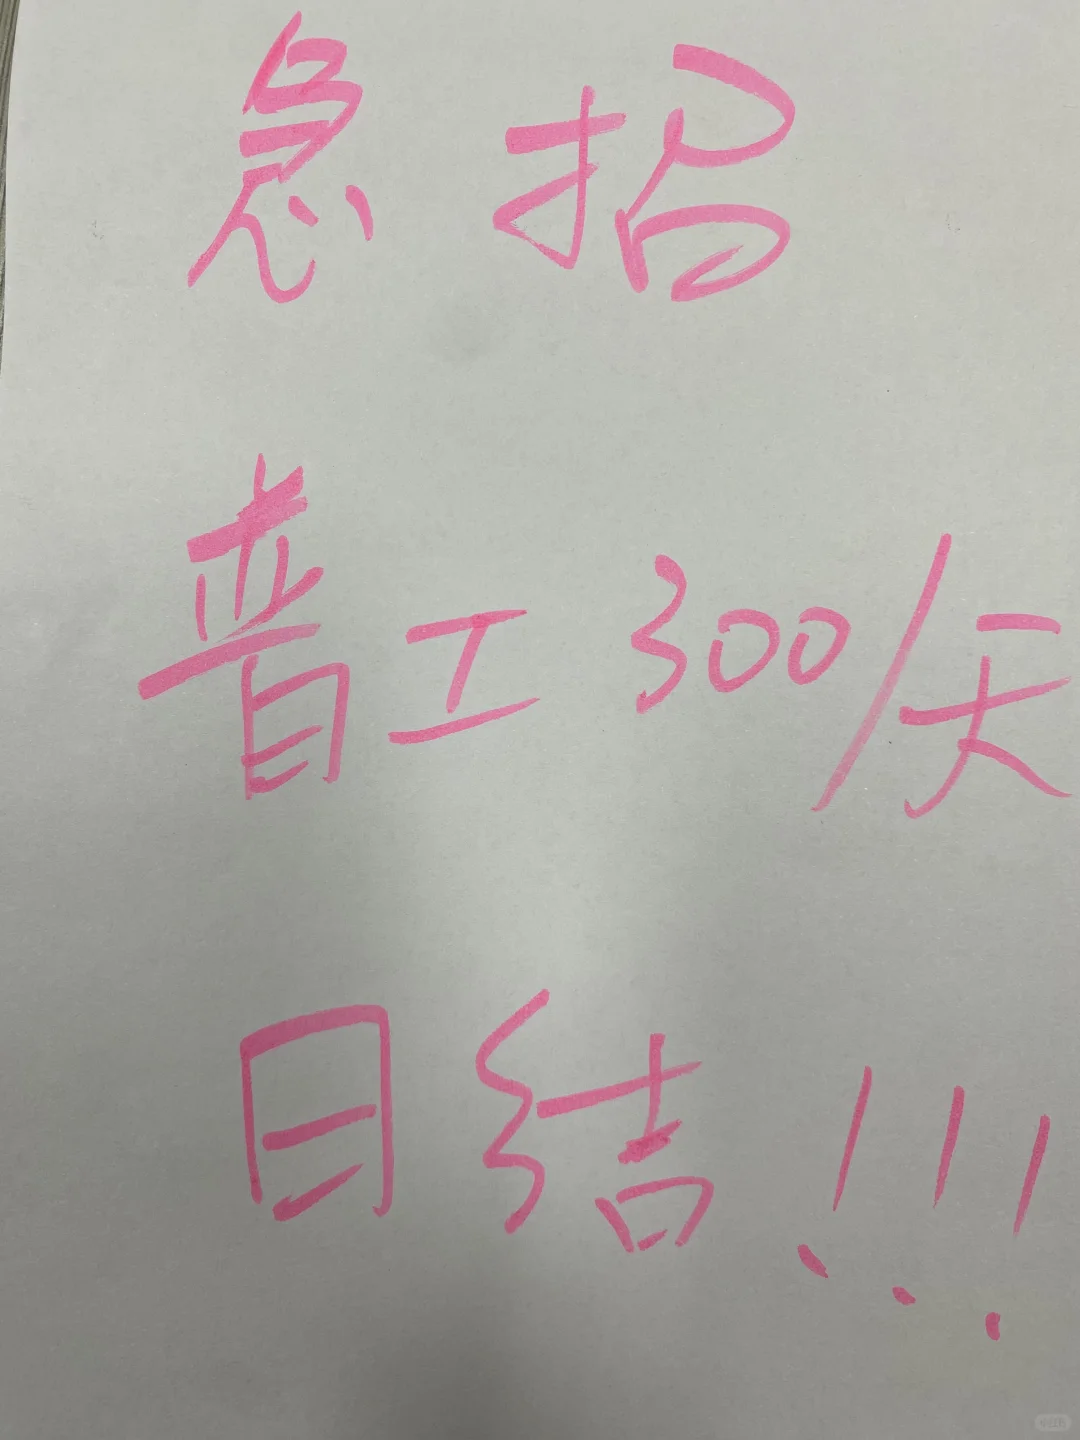 急招
普工300/天
日结!!!